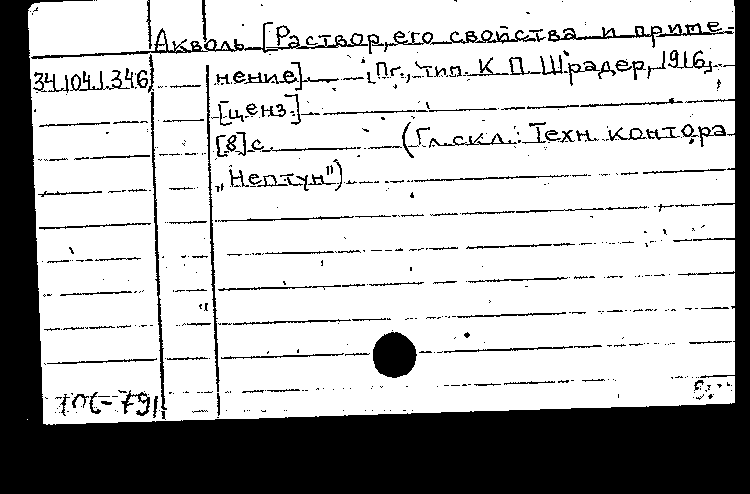 Акволь [Раствор, его свойства и приме-
34.104.1.346 нение]. Пг., тип. К.П. Шрадер, 1916,
[ценз.]
[8] с. (Гл. скл.: Техн. контора
„Нептун").
106-791